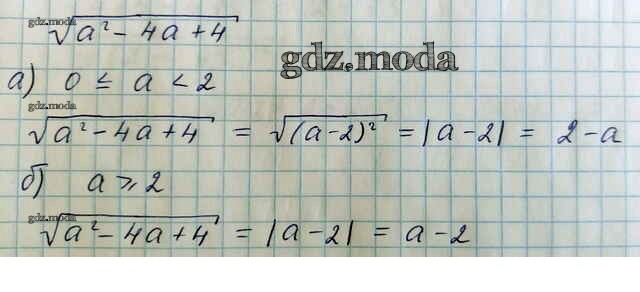 gdz.moda
√a² - 4a + 4
gdz.moda
а) 0 ≤ a < 2
gdz.moda
√a² - 4a + 4 = √(a - 2)² = |a - 2| = 2 - a
б) a ⩾ 2
gdz.moda
√a² - 4a + 4 = |a - 2| = a - 2